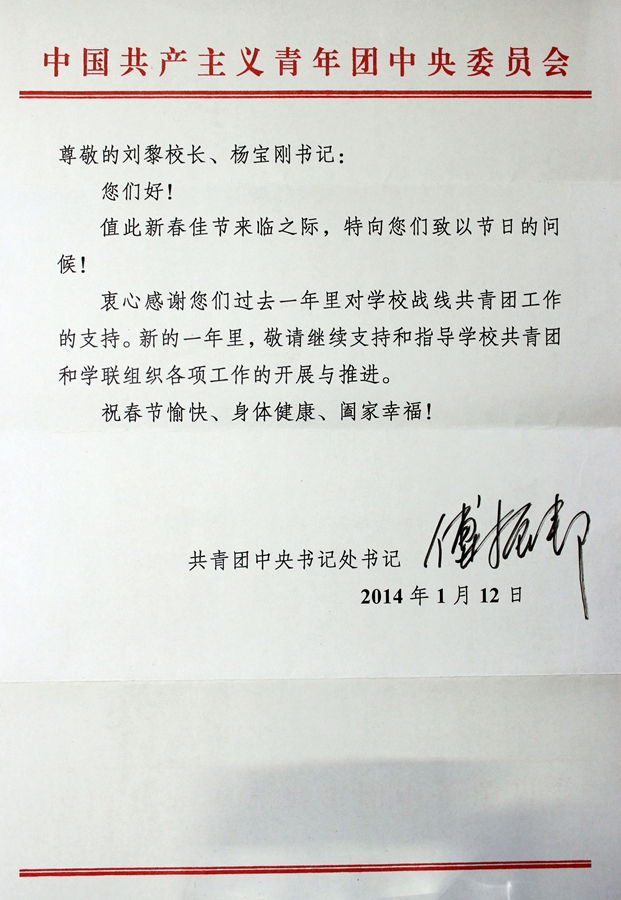 中国共产主义青年团中央委员会
尊敬的刘黎校长、杨宝刚书记：
您们好！
值此新春佳节来临之际，特向您们致以节日的问
候！
衷心感谢您们过去一年里对学校战线共青团工作
的支持。新的一年里，敬请继续支持和指导学校共青团
和学联组织各项工作的开展与推进。
祝春节愉快、身体健康、阖家幸福！
共青团中央书记处书记 傅振邦
2014 年 1 月 12 日